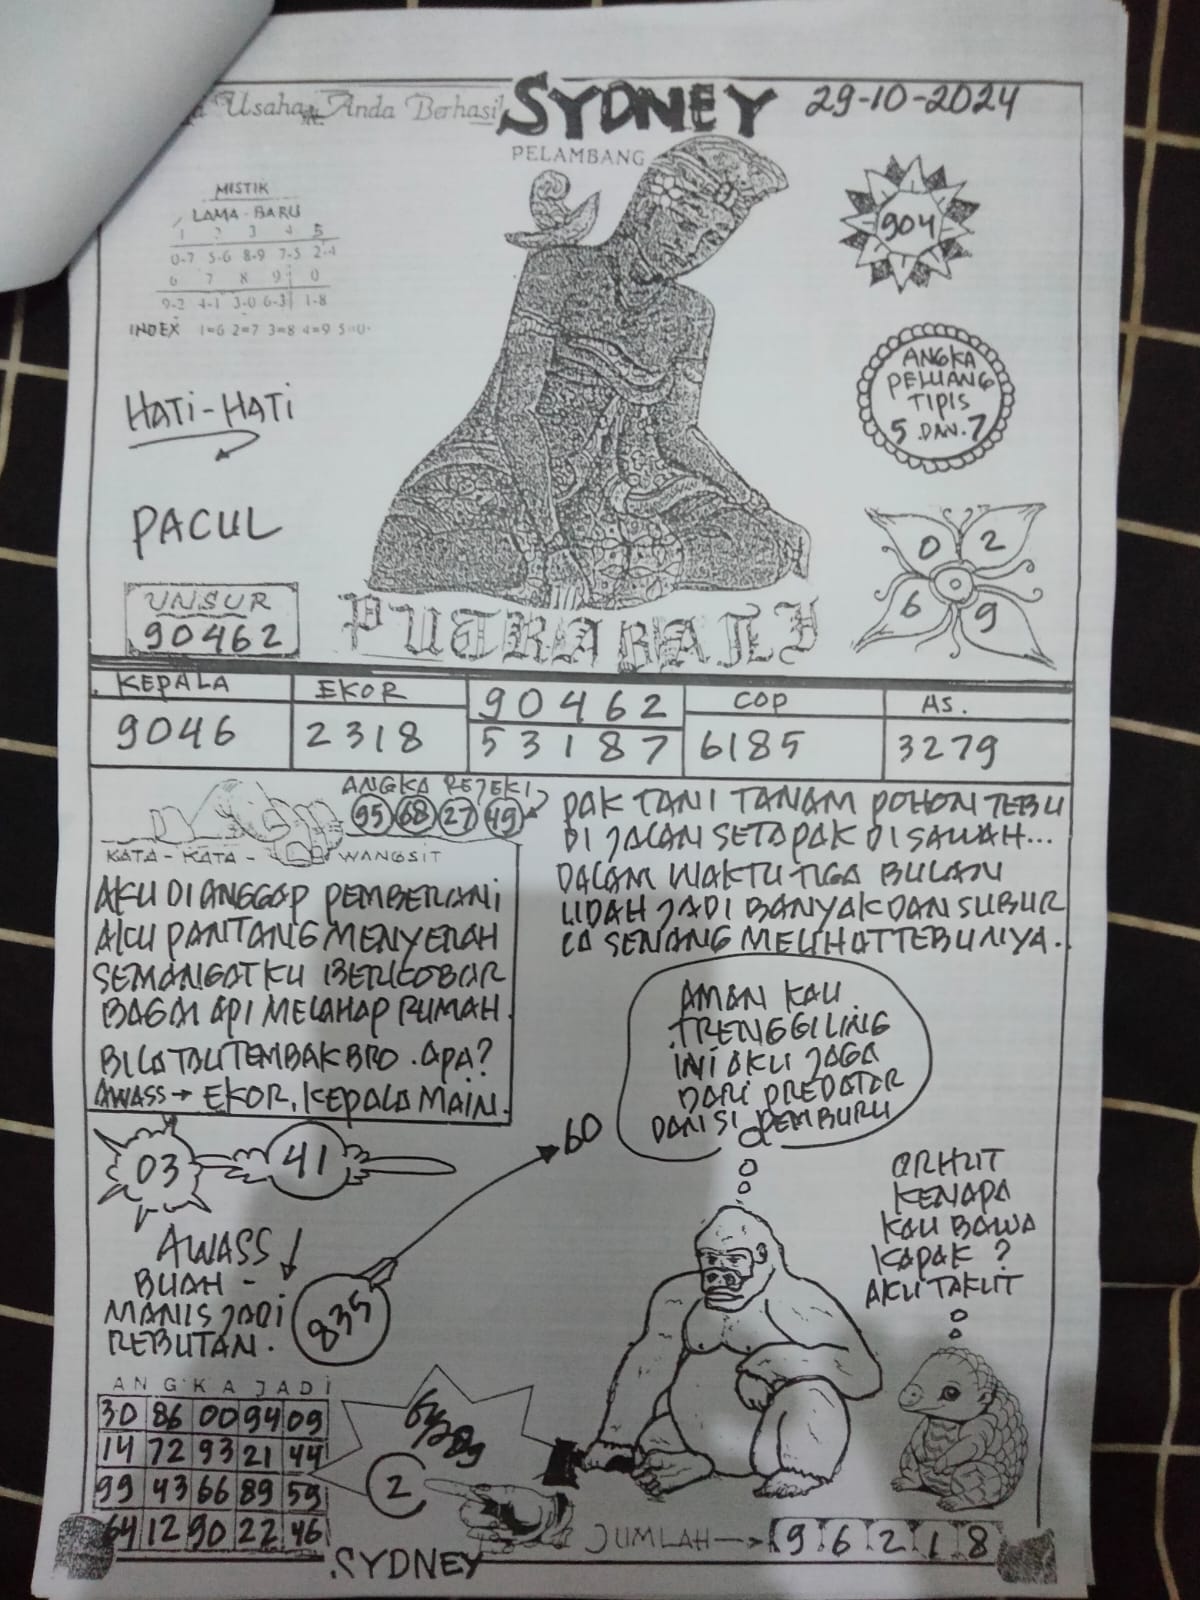 Usaha Anda Berhasil
SYDNEY
29-10-2024
PELAMBANG
MISTIK
LAMA - BARU
1 2 3 4 5
0-7 5-6 8-9 7-5 2-4
6 7 8 9 0
9-2 4-1 3-0 6-3 1-8
INDEX 1=6 2=7 3=8 4=9 5=0
904
HATI-HATI
ANGKA
PELUANG
TIPIS
5 DAN 7
PACUL
0 2
6 9
UNSUR
90462
PUTRA BALI
KEPALA
9046
EKOR
2318
90462
53187
COP
6185
AS.
3279
ANGKA REJEKI
95 68 27 49
KATA - KATA - WANGSIT
AKU DI ANGGAP PEMBERANI
AKU PANTANG MENYERAH
SEMANGATKU BERKOBAR
BAGAI API MELAHAP RUMAH.
BILA TAU TEMBAK BRO. APA?
AWASS → EKOR, KEPALA MAIN.
PAK TANI TANAM POHON TEBU
DI JALAN SETAPAK DI SAWAH...
DALAM WAKTU TIGA BULAN
UDAH JADI BANYAK DAN SUBUR
IA SENANG MELIHAT TEBUNYA.
AMAN KAU
TRENGGILING
INI AKU JAGA
DARI PREDATOR
DAN SI PEMBURU
03 41
60
ORHUT
KENAPA
KAU BAWA
KAPAK ?
AKU TAKUT
AWASS
BUAH -
MANIS JADI
REBUTAN.
835
ANGKA JADI
30 86 00 94 09
14 72 93 21 44
99 43 66 89 59
64 12 90 22 46
2
JUMLAH → 9 6 2 1 8
.SYDNEY